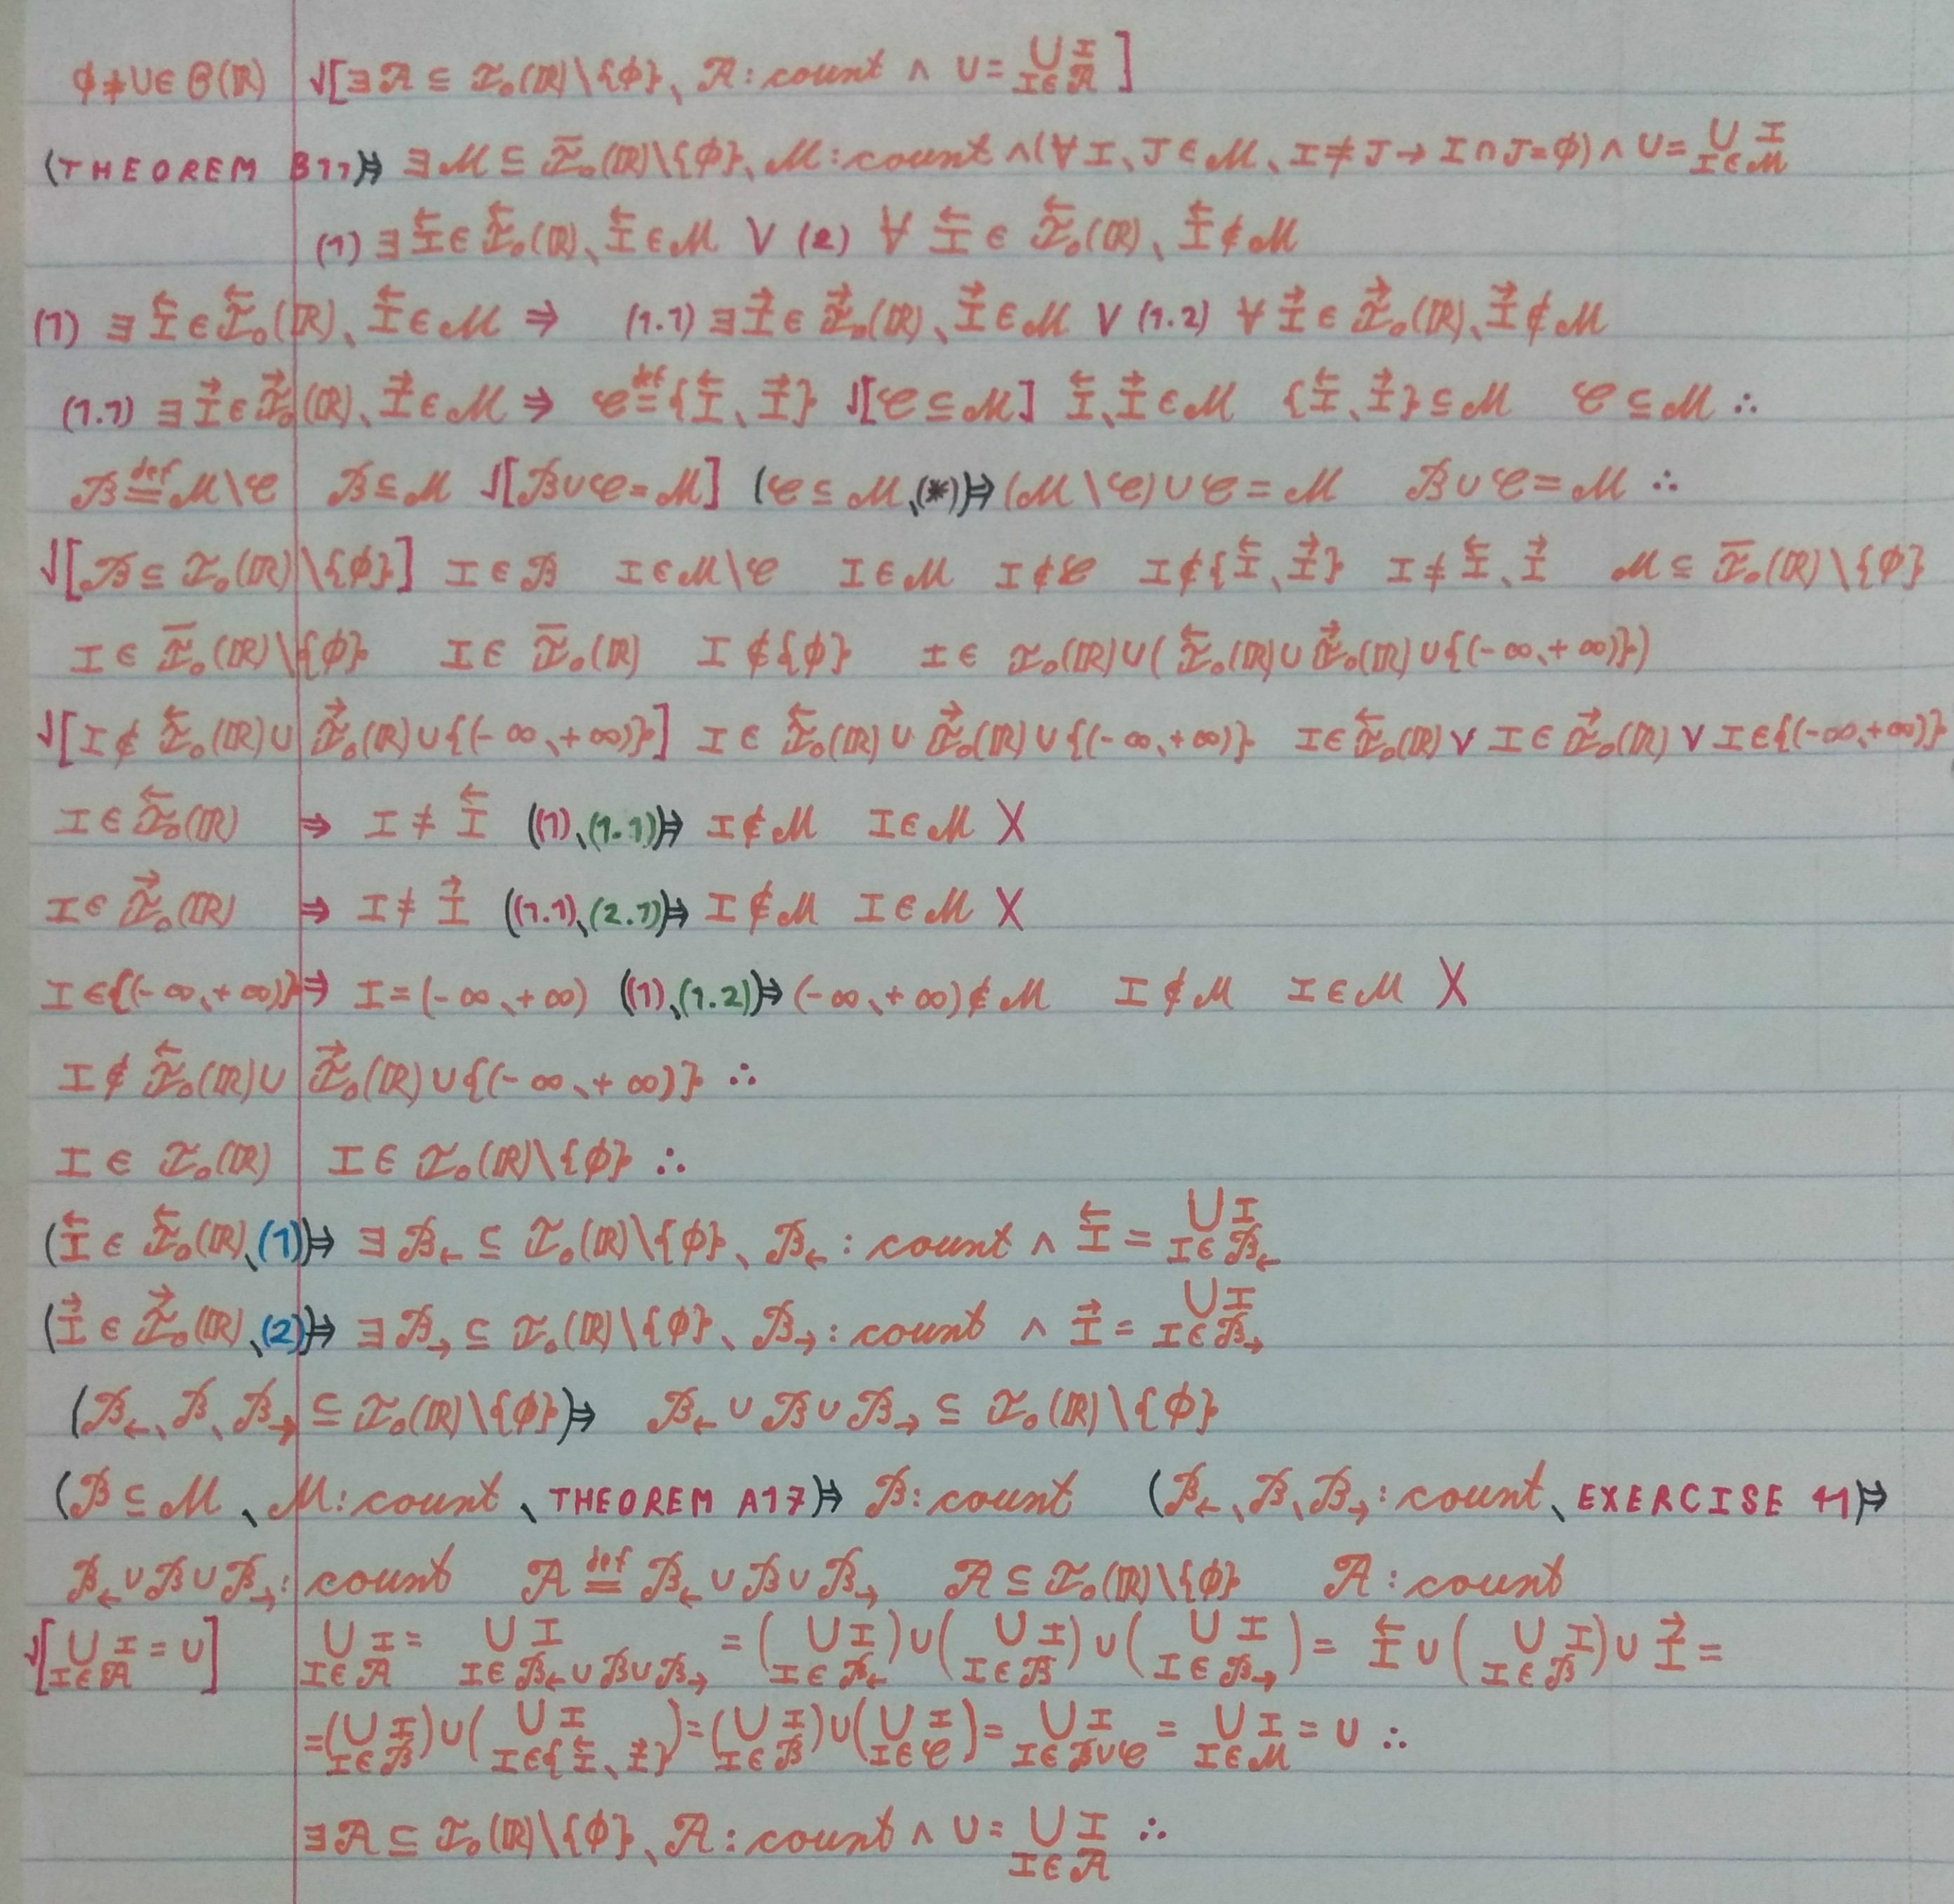 ϕ≠U∈Θ(ℝ) √[∃𝒜⊆ℐ₀(ℝ)\{ϕ}、𝒜:count ∧ U=⋃_{I∈𝒜} I]
(THEOREM B11)⇒ ∃ℳ⊆ℐ̅₀(ℝ)\{ϕ}、ℳ:count ∧(∀I、J∈ℳ、I≠J→I∩J=ϕ)∧ U=⋃_{I∈ℳ} I
(1) ∃I⃖∈ℐ⃖₀(ℝ)、I⃖∈ℳ ∨ (2) ∀I⃖∈ℐ⃖₀(ℝ)、I⃖∉ℳ
(1) ∃I⃖∈ℐ⃖₀(ℝ)、I⃖∈ℳ ⇒ (1.1) ∃I⃗∈ℐ⃗₀(ℝ)、I⃗∈ℳ ∨ (1.2) ∀I⃗∈ℐ⃗₀(ℝ)、I⃗∉ℳ
(1.1) ∃I⃗∈ℐ⃗₀(ℝ)、I⃗∈ℳ ⇒ 𝒞 def= {I⃖、I⃗} √[𝒞⊆ℳ] I⃖、I⃗∈ℳ {I⃖、I⃗}⊆ℳ 𝒞⊆ℳ ∴
ℬ def= ℳ\𝒞 ℬ⊆ℳ √[ℬ∪𝒞=ℳ] (𝒞⊆ℳ、(*))⇒(ℳ\𝒞)∪𝒞=ℳ ℬ∪𝒞=ℳ ∴
√[ℬ⊆ℐ₀(ℝ)\{ϕ}] I∈ℬ I∈ℳ\𝒞 I∈ℳ I∉𝒞 I∉{I⃖、I⃗} I≠I⃖、I⃗ ℳ⊆ℐ̅₀(ℝ)\{ϕ}
I∈ℐ̅₀(ℝ)\{ϕ} I∈ℐ̅₀(ℝ) I∉{ϕ} I∈ℐ₀(ℝ)∪(ℐ⃖₀(ℝ)∪ℐ⃗₀(ℝ)∪{(-∞、+∞)})
√[I∉ℐ⃖₀(ℝ)∪ℐ⃗₀(ℝ)∪{(-∞、+∞)}] I∈ℐ⃖₀(ℝ)∪ℐ⃗₀(ℝ)∪{(-∞、+∞)} I∈ℐ⃖₀(ℝ)∨I∈ℐ⃗₀(ℝ)∨I∈{(-∞、+∞)}
I∈ℐ⃖₀(ℝ) ⇒ I≠I⃖ ((1)、(1.1))⇒ I∉ℳ I∈ℳ X
I∈ℐ⃗₀(ℝ) ⇒ I≠I⃗ ((1.1)、(2.1))⇒ I∉ℳ I∈ℳ X
I∈{(-∞、+∞)}⇒ I=(-∞、+∞) ((1)、(1.2))⇒(-∞、+∞)∉ℳ I∉ℳ I∈ℳ X
I∉ℐ⃖₀(ℝ)∪ℐ⃗₀(ℝ)∪{(-∞、+∞)} ∴
I∈ℐ₀(ℝ) I∈ℐ₀(ℝ)\{ϕ} ∴
(I⃖∈ℐ⃖₀(ℝ)、(1))⇒ ∃ℬ←⊆ℐ₀(ℝ)\{ϕ}、ℬ←:count ∧ I⃖=⋃_{I∈ℬ←} I
(I⃗∈ℐ⃗₀(ℝ)、(2))⇒ ∃ℬ→⊆ℐ₀(ℝ)\{ϕ}、ℬ→:count ∧ I⃗=⋃_{I∈ℬ→} I
(ℬ←、ℬ、ℬ→⊆ℐ₀(ℝ)\{ϕ})⇒ ℬ←∪ℬ∪ℬ→⊆ℐ₀(ℝ)\{ϕ}
(ℬ⊆ℳ、ℳ:count、THEOREM A17)⇒ ℬ:count (ℬ←、ℬ、ℬ→:count、EXERCISE 41)⇒
ℬ←∪ℬ∪ℬ→:count 𝒜 def= ℬ←∪ℬ∪ℬ→ 𝒜⊆ℐ₀(ℝ)\{ϕ} 𝒜:count
√[⋃_{I∈𝒜} I=U] ⋃_{I∈𝒜} I=⋃_{I∈ℬ←∪ℬ∪ℬ→} I=(⋃_{I∈ℬ←} I)∪(⋃_{I∈ℬ} I)∪(⋃_{I∈ℬ→} I)=I⃖∪(⋃_{I∈ℬ} I)∪I⃗=
=(⋃_{I∈ℬ} I)∪(⋃_{I∈{I⃖、I⃗}} I)=(⋃_{I∈ℬ} I)∪(⋃_{I∈𝒞} I)=⋃_{I∈ℬ∪𝒞} I=⋃_{I∈ℳ} I=U ∴
∃𝒜⊆ℐ₀(ℝ)\{ϕ}、𝒜:count ∧ U=⋃_{I∈𝒜} I ∴